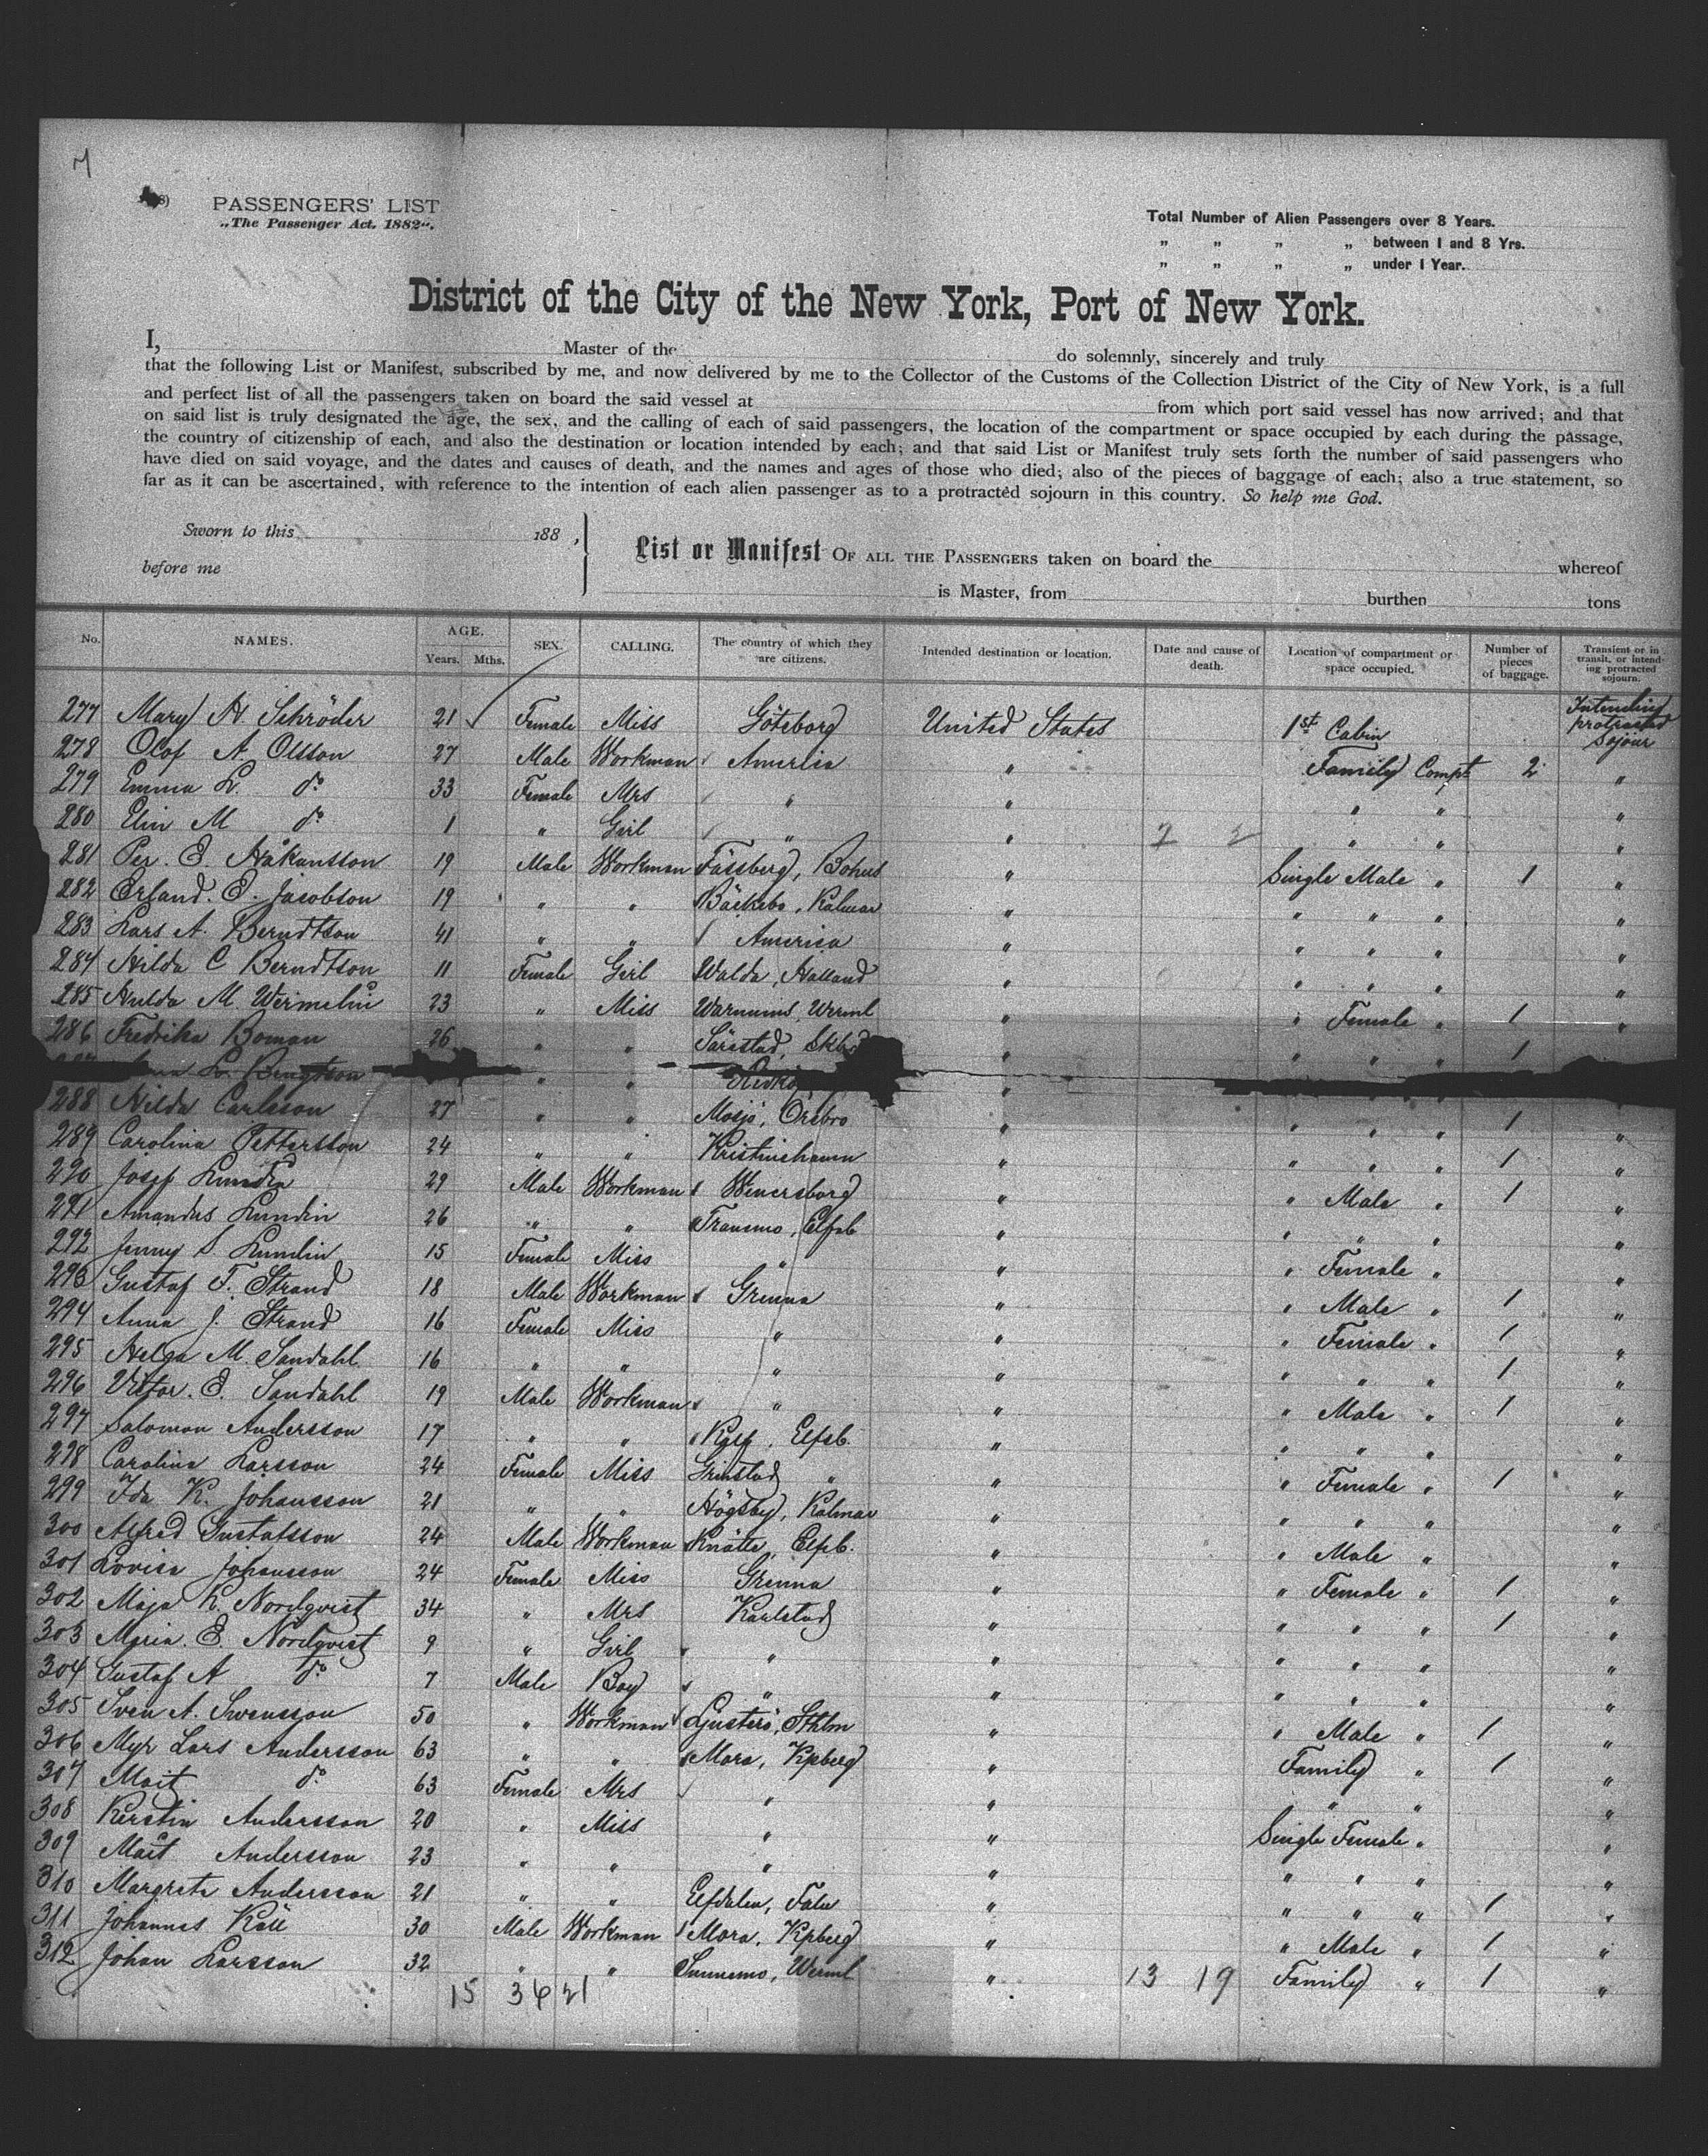 7
PASSENGERS' LIST
„The Passenger Act. 1882".
Total Number of Alien Passengers over 8 Years.
„ „ „ „ between 1 and 8 Yrs.
„ „ „ „ under 1 Year.
District of the City of the New York, Port of New York.
I, Master of the do solemnly, sincerely and truly
that the following List or Manifest, subscribed by me, and now delivered by me to the Collector of the Customs of the Collection District of the City of New York, is a full
and perfect list of all the passengers taken on board the said vessel at from which port said vessel has now arrived; and that
on said list is truly designated the age, the sex, and the calling of each of said passengers, the location of the compartment or space occupied by each during the passage,
the country of citizenship of each, and also the destination or location intended by each; and that said List or Manifest truly sets forth the number of said passengers who
have died on said voyage, and the dates and causes of death, and the names and ages of those who died; also of the pieces of baggage of each; also a true statement, so
far as it can be ascertained, with reference to the intention of each alien passenger as to a protracted sojourn in this country. So help me God.
Sworn to this 188 ,
before me
List or Manifest OF ALL THE PASSENGERS taken on board the whereof
is Master, from burthen tons
No. NAMES. AGE. Years. Mths. SEX. CALLING. The country of which they are citizens. Intended destination or location. Date and cause of death. Location of compartment or space occupied. Number of pieces of baggage. Transient or in transit, or intending protracted sojourn.
277 Mary A Schröder 21 Female Miss Göteborg United States 1st Cabin Intending protracted Sojour
278 Olof A Olsson 27 Male Workman America " Family Compt 2 "
279 Emma L. do 33 Female Mrs " " " " "
280 Elin M do 1 " Girl " " " " "
281 Per. E. Håkansson 19 Male Workman Fässberg, Bohus " Single Male " 1 "
282 Erland. E. Jacobson 19 " " Bäckebo, Kalmar " " " " "
283 Lars A. Berndtson 41 " " America " " " " "
284 Hilda C Berndtson 11 Female Girl Walda, Halland " " " " "
285 Hulda M. Wermelin 23 " Miss Warnums, Werml " " Female " 1 "
286 Fredrika Boman 26 " " Särestad, " " " " 1
L. Bengtson " " "
288 Hilda Carlsson 27 " " Mosjö, Örebro " " " " 1 "
289 Carolina Pettersson 24 " " Kristinehamn " " " " 1 "
290 Josef Lundin 29 Male Workman Wenersborg " " Male " 1 "
291 Amandus Lundin 26 " " Tranemo, Elfsb " " " " "
292 Jenny S Lundin 15 Female Miss " " " Female " "
293 Gustaf F. Strand 18 Male Workman Grenna " " Male " 1 "
294 Anna J. Strand 16 Female Miss " " " Female " 1 "
295 Helga M. Sandahl 16 " " " " " " " 1 "
296 Victor. E. Sandahl 19 Male Workman " " " Male " 1 "
297 Salomon Andersson 17 " " Elfsb. " " " " "
298 Carolina Larsson 24 Female Miss Grinstad " " " Female " 1 "
299 Ida K. Johansson 21 " " Högsby, Kalmar " " " " "
300 Alfred Gustafsson 24 Male Workman Knätte, Elfsb. " " Male " "
301 Lovisa Johansson 24 Female Miss Grenna " " Female " 1 "
302 Maja K. Nordqvist 34 " Mrs Karlstad " " " " 1 "
303 Maria. E. Nordqvist 9 " Girl " " " " " "
304 Gustaf A do 7 Male Boy " " " " " "
305 Sven A. Swensson 50 " Workman Ljusterö, Sthlm " " Male " 1 "
306 Myr Lars Andersson 63 " " Mora, Kpberg " Family " 1 "
307 Mait do 63 Female Mrs " " " " "
308 Kerstin Andersson 20 " Miss " " Single Female " "
309 Mait Andersson 23 " " " " " " " "
310 Margreta Andersson 21 " " Elfdalen, Falu " " " " 1 "
311 Johannes Käll 30 Male Workman Mora, Kpberg " " Male " 1 "
312 Johan Larsson 32 " " Sunnemo, Werml " 13 19 Family " 1 "
15 36 21